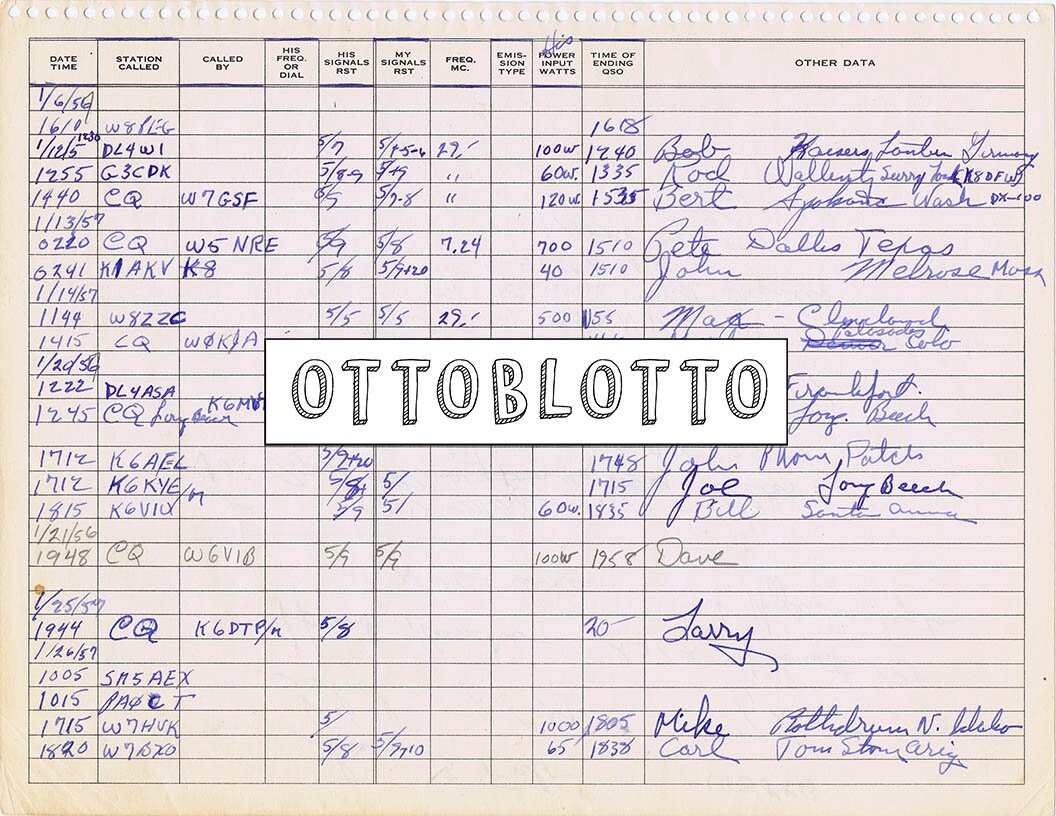 DATE TIME STATION CALLED CALLED BY HIS FREQ. OR DIAL HIS SIGNALS RST MY SIGNALS RST FREQ. MC. EMIS- SION TYPE His POWER INPUT WATTS TIME OF ENDING QSO OTHER DATA
1/6/56
1610 W8PEG 1618
1/12/5 1230 DL4WI 5/7 29,- 100W 1240 Bob
1255 G3CDK 5/8-9 " 60W. 1335 Rod (K8DFW)
1440 CQ W7GSF 5/7-8 " 120W 1535 Bert Spokane Wash DX-100
1/13/57
0220 CQ W5NRE 5/9 5/8 7.24 700 1510 Pete Dallis Texas
0241 K1AKV K8 5/8 5/9+20 40 1510 John Melrose Mass
1/14/57
1144 W8ZZC 5/5 5/5 29,- 500 155 Max - Cleveland
1415 CQ WØKJA Palasades Colo
1/20/56
1222 DL4ASA Frankfort.
1245 CQ Long Beach Long. Beech
OTTOBLOTTO
1712 K6AEL 5/9+20 1748 John Phone Patch
1712 K6KYE/M 5/8 5/ 1715 Joe Long Beech
1815 K6VIQ 5/9 5/ 60W. 1835 Bill Santa Anna
1/21/56
1948 CQ W6VIB 5/9 5/9 100W 1958 Dave
1/25/57
1944 CQ K6DTP/M 5/8 20- Larry
1/26/57
1005 SM5AEX
1015
1715 W7HUK 5/ 1000 1805 Mike Rathdrum N. Idaho
1820 5/8 5/9+10 65 1838 Carl Tom Stone Ariz